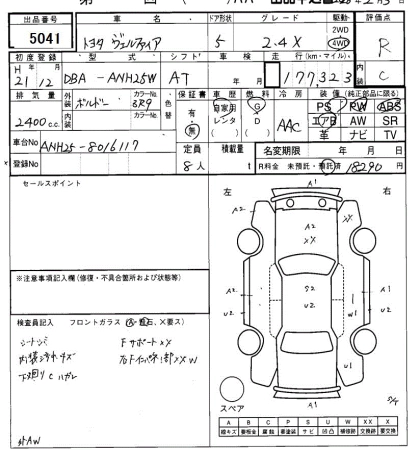 出品番号 車名 ドア形状 グレード 駆動 評価点
5041 トヨタ ヴェルファイア 5 2.4X 2WD 4WD R
初度登録 型式 シフト 車検 走行(km・マイル) 内装
H 21年 12月 DBA-ANH25W AT 年 月 177,323 C
排気量 外装 カラーNo. 色替 自家用 レンタ 燃料 冷房 装備(純正部品に限る)
2400c.c. ボルドー 3R9 有・無 G D AAC PS PW ABS
内装 カラーNo. エアB AW SR
革 ナビ TV
車台No ANH25-8016117 定員 積載量 名変期限 年 月 日
登録No 8人 t R料金 未預託・預託済 18290円
セールスポイント
左 右
A1
A2 XX
A2
XX
A2 S2 A2
U2 U2 W1 U2
U1
A1
※注意事項記入欄(修復・不具合箇所および状態等)
検査員記入 フロントガラス(A・飛石、X要ス)
内装汚れキズ
下廻りCハガレ
FサポートXX
スペア
A B C P S U W XX X
線キズ 要板金 腐蝕 要塗装 サビ 凹凸 補修跡 交換跡 要交換